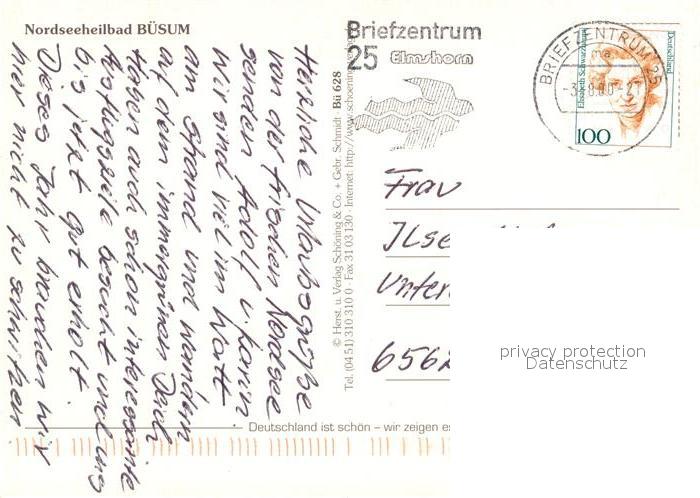 Nordseeheilbad BÜSUM
Briefzentrum
25 Elmshorn
BRIEFZENTRUM 25
ma
-3.-8.00-21
Deutschland
Elisabeth Schwarzhaupt
100
Herzliche Urlaubsgrüße
von der frischen Nordsee
senden Adolf u. Karin
Wir sind viel im Watt
am Strand und wandern
auf dem immergrünen Deich
Haben auch schon interessante
Ausflugsziele besucht und uns
bis jetzt gut erholt.
Dieses Jahr brauchen wir
hier nicht zu schwitzen
© Herst. u. Verlag Schöning & Co. + Gebr. Schmidt · Bü 628
Tel. (04 51) 310 310 0 · Fax 31 03 130 · Internet: http://www.schoening-verlag
Frau
Ilse
Unter
6562
privacy protection
Datenschutz
Deutschland ist schön – wir zeigen es